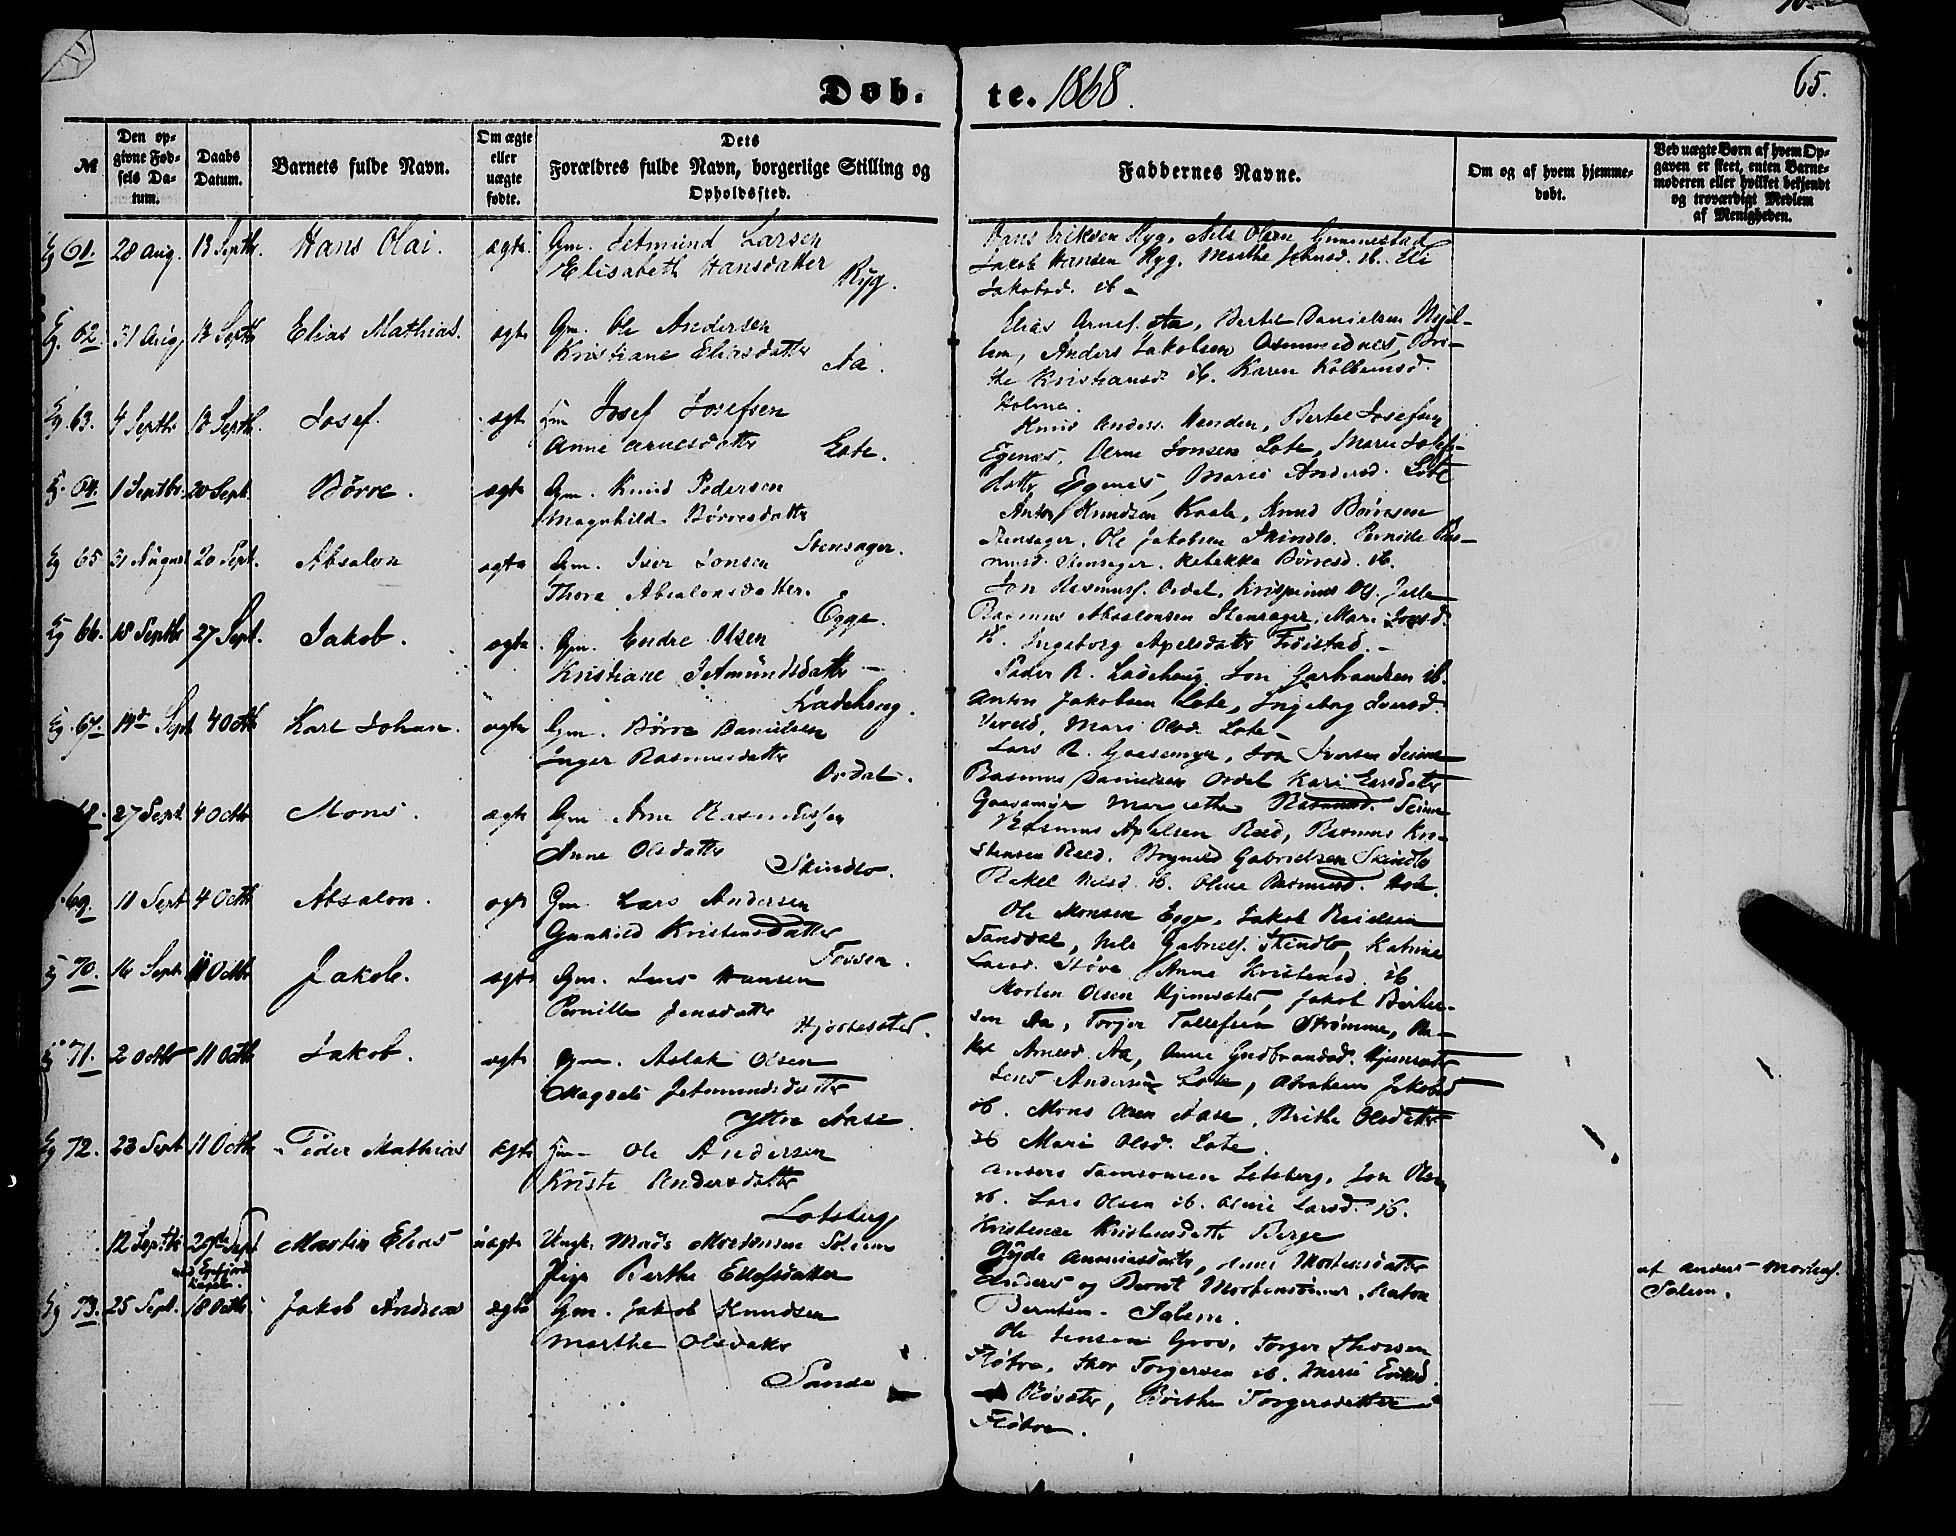 Døb-te. 1868.
65.
№
Den opgivne Fødsels Datum.
Daabs Datum.
Barnets fulde Navn.
Om ægte eller uægte fødte.
Dets Forældres fulde Navn, borgerlige Stilling og Opholdssted.
Faddernes Navne.
Om og af hvem hjemmedøbt.
Ved uægte Børn af hvem Opgaven er skeet, enten Barnemoderen eller hvilket bekjendt og troværdigt Medlem af Menigheden.
Eg 61. 28 Aug. 13 Septb. Hans Olai. ægte Gm. Jetmund Larsen
Elisabeth Hansdatter
Ryg.
Hans Eriksen Ryg, Nils Olsen Gimmestad
Jakob Hansen Ryg, Marthe
Jakobsd. ib.
Eg. 62. 31 Aug. 13 Septb Elias Mathias. ægte Gm. Ole Andersen
Kristiane Eliasdatter
Aa.
Elias Arnes. Aa, Bertel Danielsen
Anders Jakobsen
the Kristiansd. ib. Karen
Holme.
Eg 63. 4 Septb 13 Septb. Josef. ægte Gm Josef Josefsen
Anne Arnesdatter
Lote.
Knud Anders. Henden, Bertel Josefsen
Egenes, Arne Jonsen Lote, Marie Josefs-
datter Egenes, Marie Andersd. Lote
Eg. 64. 1 Septbr. 20 Sept. Børre. ægte Gm. Knud Pedersen
Magnhild Børresdatter
Stensager.
Anton Knudsen Kaale, Knud Børresen
Stensager, Ole Jakobsen Skindlo. Pernille Ras-
musd. Stensager. Rebekka Børresd. ib.
Eg 65 31 August 20 Sept. Absalon ægte Gm. Iver Jonsen
Thora Absalonsdatter.
Egge.
Jon Rasmuss. Ordal,
Rasmus Absalonsen Stensager, Mari Jonsd.
ib. Ingeborg Apelsdatter Frøistad.
Eg 66. 18 Septb 27 Sept. Jakob. ægte. Gm. Endre Olsen
Kristiane Jetmundsdatter
Ladehoug.
Peder R. Ladehoug. Jon Garbrandsen ib.
Anton Jakobsen Lote, Ingeborg Iversd.
Vereid, Mari Olsd. Lote
Eg. 67. 19de Sept 4 Octb Karl Johan. ægte Gm. Børre Danielsen
Inger Rasmusdatter
Ordal.
Lars R. Gaasemyr, Jon Iversen Seime
Rasmus Danielsen Ordal Kari Larsdatter
Gaasemyr Margrethe Rasmusd. Seime
68. 27 Sept 4 Octb Mons. ægte Gm Arne Rasmussen
Anne Olsdatter
Skindlo.
Rasmus Apelsen Reed, Rasmus Kri-
stensen Reed. Gabrielsen Skindlo
Rakel Nilsd. ib. Oline Rasmusd.
69. 11 Sept 4 Octb Absalon. ægte Gm. Lars Andersen
Gunhild Kristensdatter
Fossen.
Ole Monsen Egge, Jakob
Sanddal, Nils Gabriels. Skindlo, Katrine
Larsd. Støve Anne Kristensd. ib
Eg 70. 16 Sept 11 Octb Jakob. ægte Gm. Jens Hansen
Pernille Jensdatter
Hjortesæter.
Morten Olsen Hjemesæter, Jakob Berthe-
sen Aa, Torger Tollefsen Strømme, Ra-
kel Arnesd. Aa, Anne Gudbrandsd. Hjemesæter
Eg 71. 2 Octb 11 Octb Jakob. ægte Gm. Aslak Olsen
Magreta Jetmundsdatter
Ytre Aase.
Jens Andersen Lote, Abraham Jakobsd
ib. Mons Olsen Aase, Brithe Olsdatter
ib Mari Olsd. Lote.
Eg 72. 23 Sept 11 Octb Peder Mathias ægte Gm Ole Andersen
Kristi Andersdatter
Lotsberg
Anders Samsonsen Lotsberg, Jon Olsen
ib. Lars Olsen ib. Oline Larsd. ib.
Kristense Kristensdatter Berge
12 Septb 20de Sept Martin Elias uægte Ungk. Mads Mortensen Solem
ved Kapel. Pige Berthe Ellefsdatter
Gyda Ananiasdatter, Anne Mortensdatter
Anders og Bernt Mortensønner, Anton
Berntsen Solem.
af Anders Mortens.
Solem.
Eg 73. 25 Sept. 18 Octb Jakob Andreas ægte Gm. Jakob Knudsen
Marthe Olsdatter
Sande
Ole Jensen Grov, Torger Thorsen
Fløtre, Thor Torgersen ib. Marie Eriksd.
Røsæter, Brithe Torgersdatter
Fløtre.